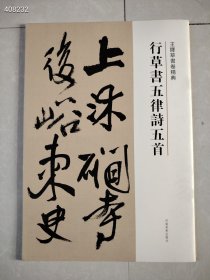 408232
王鐸草書卷精典
行草書五律詩五首
上沐磵寺
後峪東史